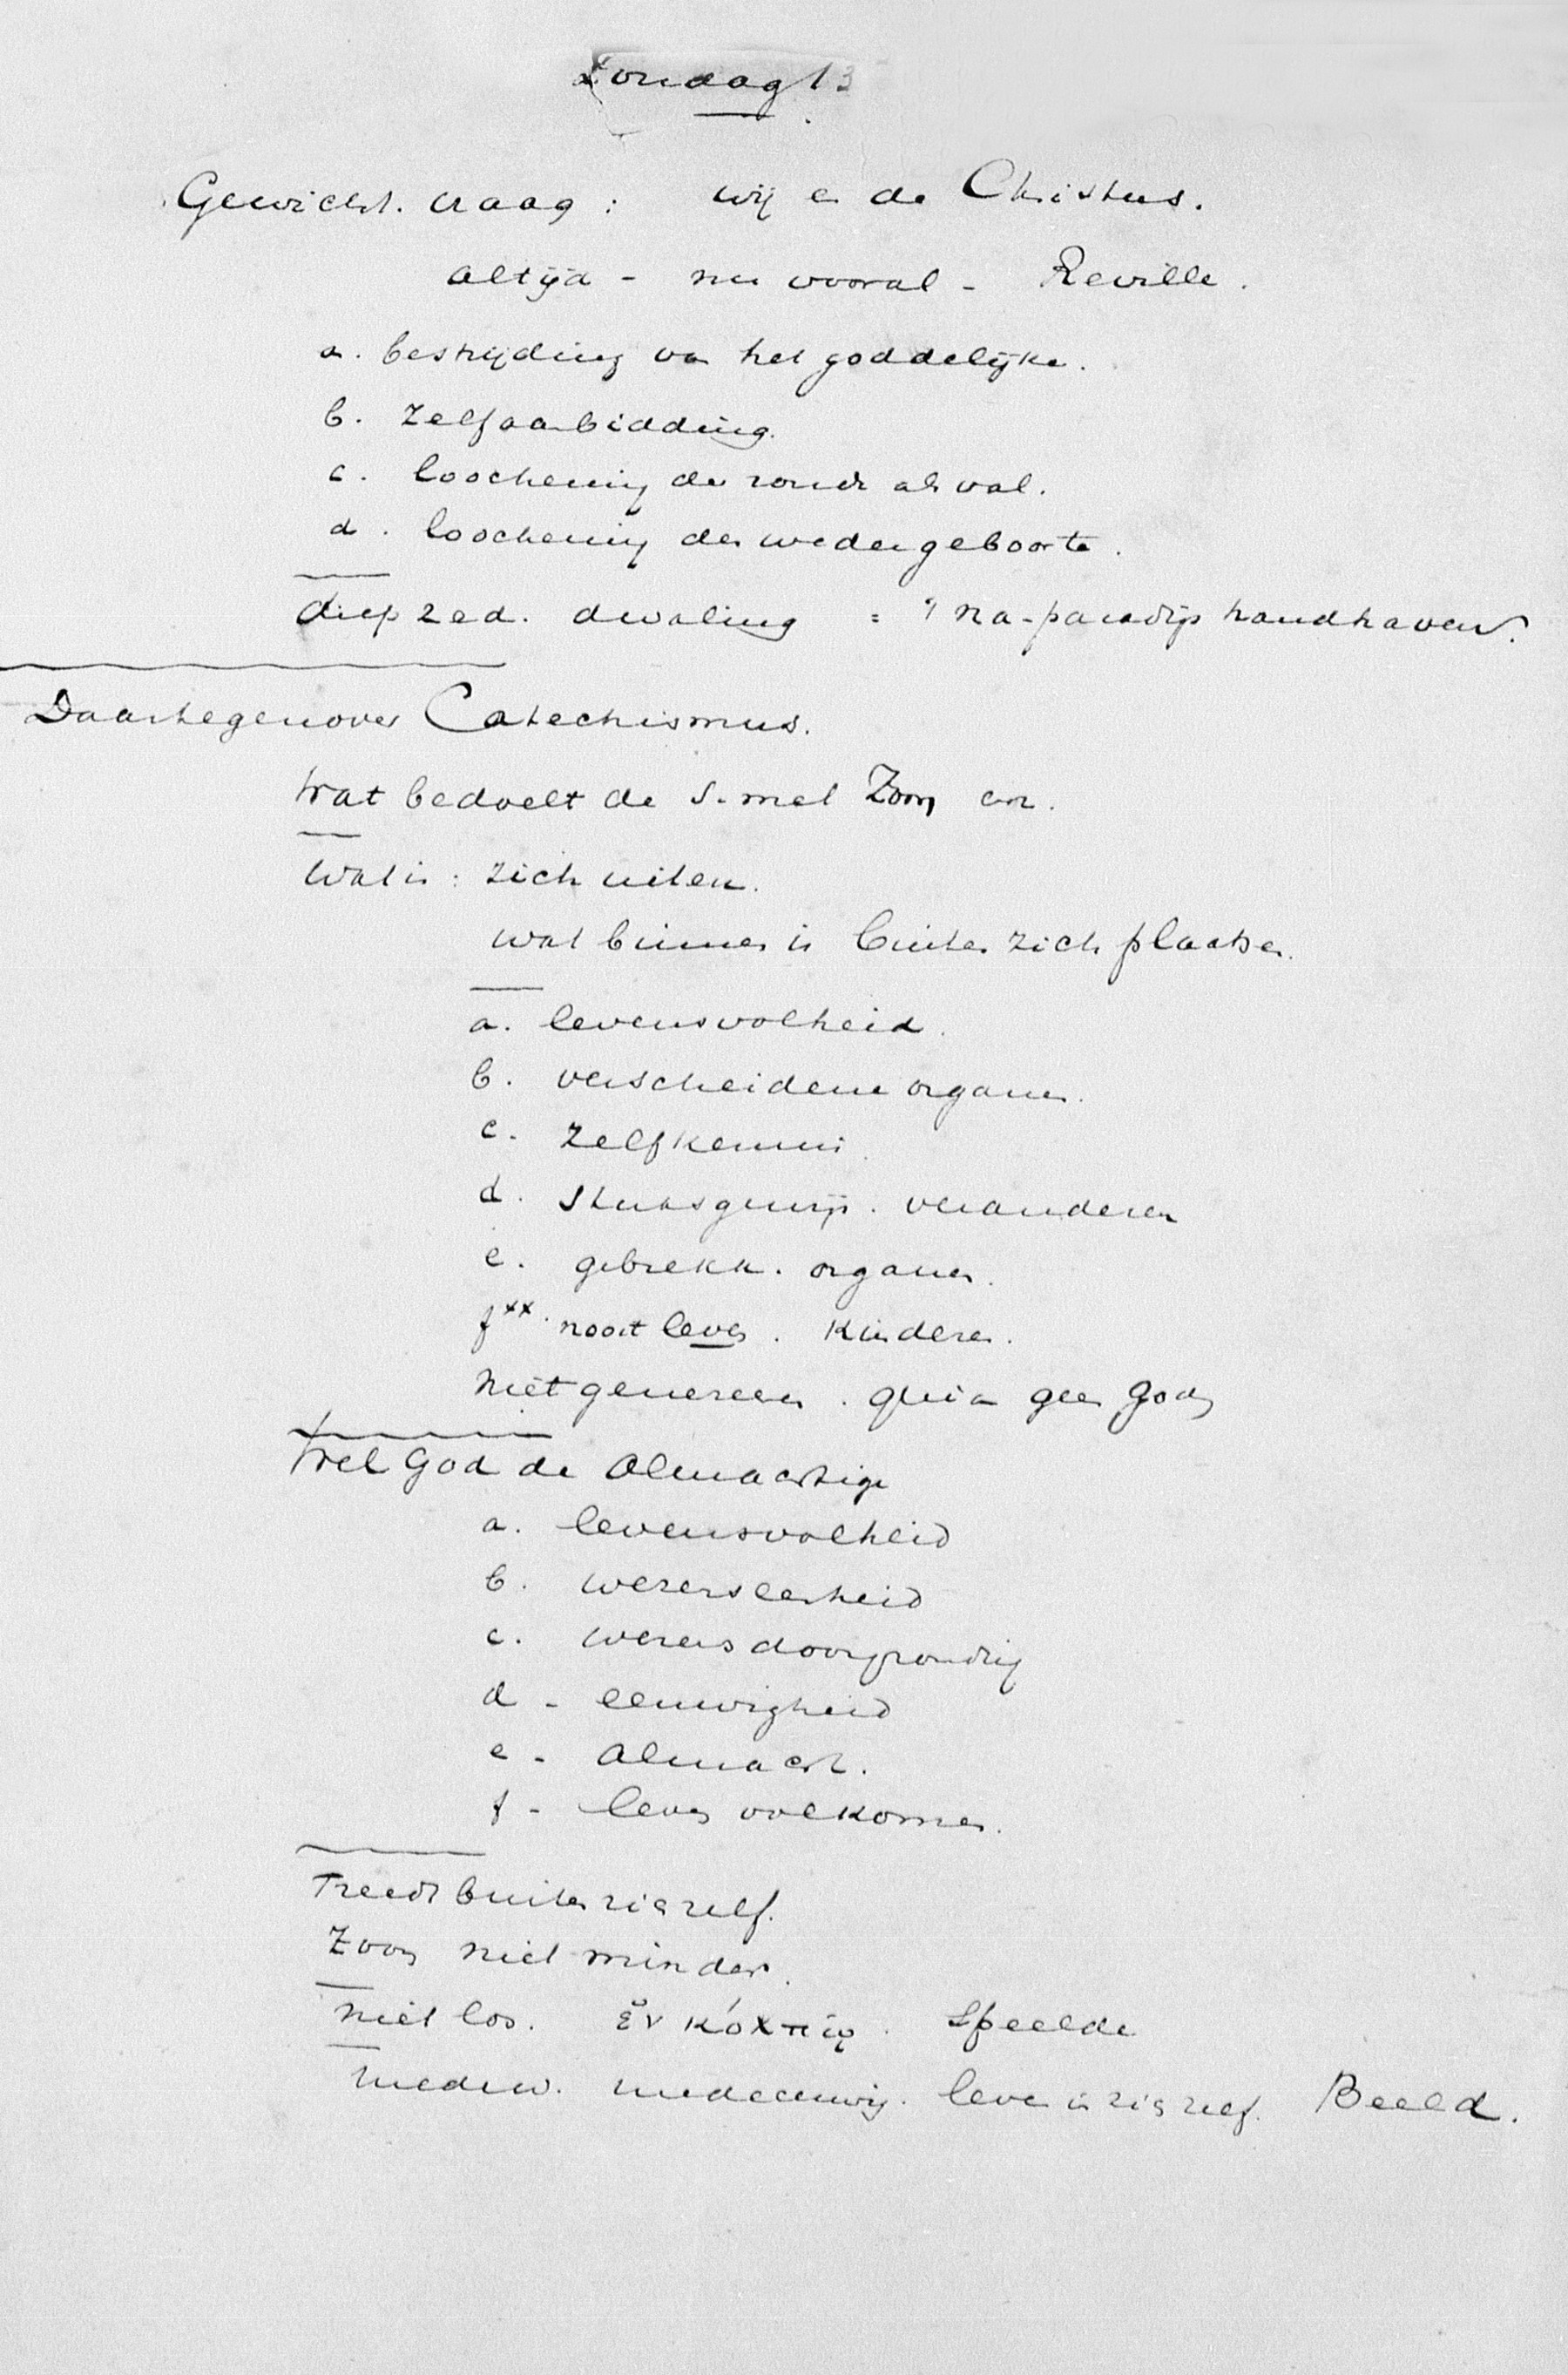 Zondag 13
Gewicht. vraag : wij en de Christus.
altijd - nu vooral - Reville.
a. bestrijding van het goddelijke.
b. zelfaanbidding.
c. loochening der zonde als val.
d. loochening der wedergeboorte.
diep zed. dwaling = 't na-paradijs handhaven.
Daartegenover Catechismus.
Wat bedoelt de S. met Zoon
Wat is : zich uiten.
wat binnen is buiten zich plaatsen.
a. levensvolheid.
b. verscheidene organen.
c. zelfkennis
d. veranderen
e. gebrekk. organen.
f xx. nooit leven. Kinderen.
niet genereren. quia geen God
Wel God de Almachtige
a. levensvolheid
b. wezenseenheid
c. wezensdoorgronding
d - eeuwigheid
e - almacht.
f - leven volkomen.
Treedt buiten zich zelf.
Zoon niet minder.
niet los. ἐν κόλπῳ. Speelde
medew. medeeeuwig. leven in zich zelf. Beeld.